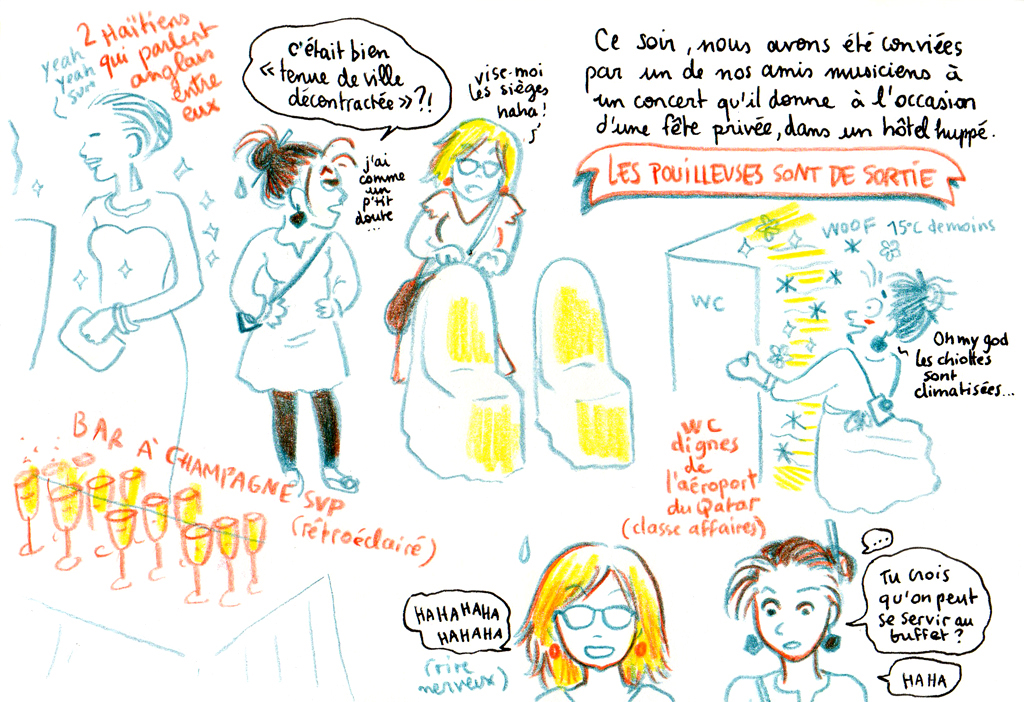 2 Haïtiens
qui parlent
anglais
entre
eux
yeah
yeah
sure
c'était bien
« tenue de ville
décontractée » ?!
j'ai
comme
un
p'tit
doute
...
vise-moi
les sièges
haha !
Ce soir, nous avons été conviées
par un de nos amis musiciens à
un concert qu'il donne à l'occasion
d'une fête privée, dans un hôtel huppé.
LES POUILLEUSES SONT DE SORTIE
WOOF 15°C de moins
WC
Oh my god
les chiottes
sont
climatisées...
WC
dignes
de
l'aéroport
du Qatar
(classe affaires)
BAR À CHAMPAGNE SVP
(rétroéclairé)
HAHAHAHA
HAHAHA
(rire
nerveux)
...
Tu crois
qu'on peut
se servir au
buffet ?
HAHA